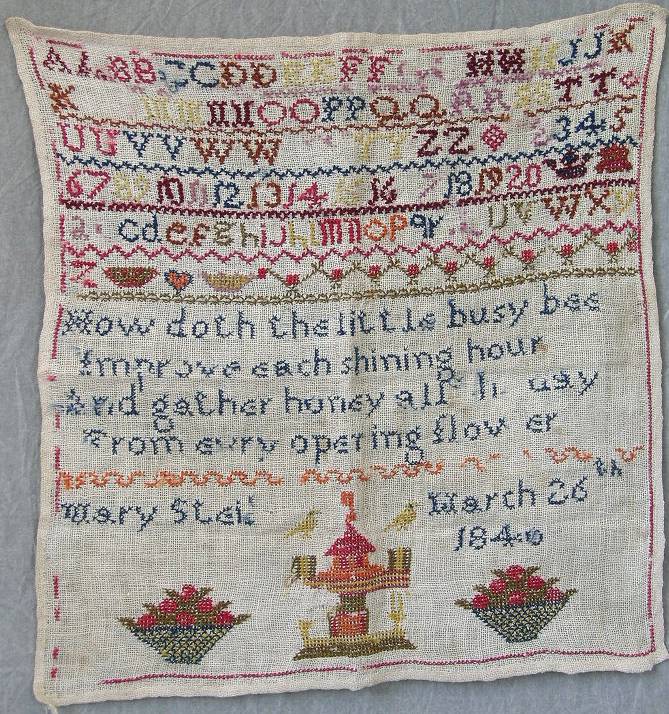 A A B B C C D D E E F F H H I J J K
K M M N N O O P P Q Q R R S S T T
U U V V W W Y Y Z Z 2 3 4 5
6 7 8 9 10 11 12 13 14 15 16 7 18 19 20
a c d e f g h i j k l m n o p q r U V W X Y
Z
How doth the little busy bee
Improve each shining hour
And gather honey all
From evry opering flower
Mary
March 26th
1840